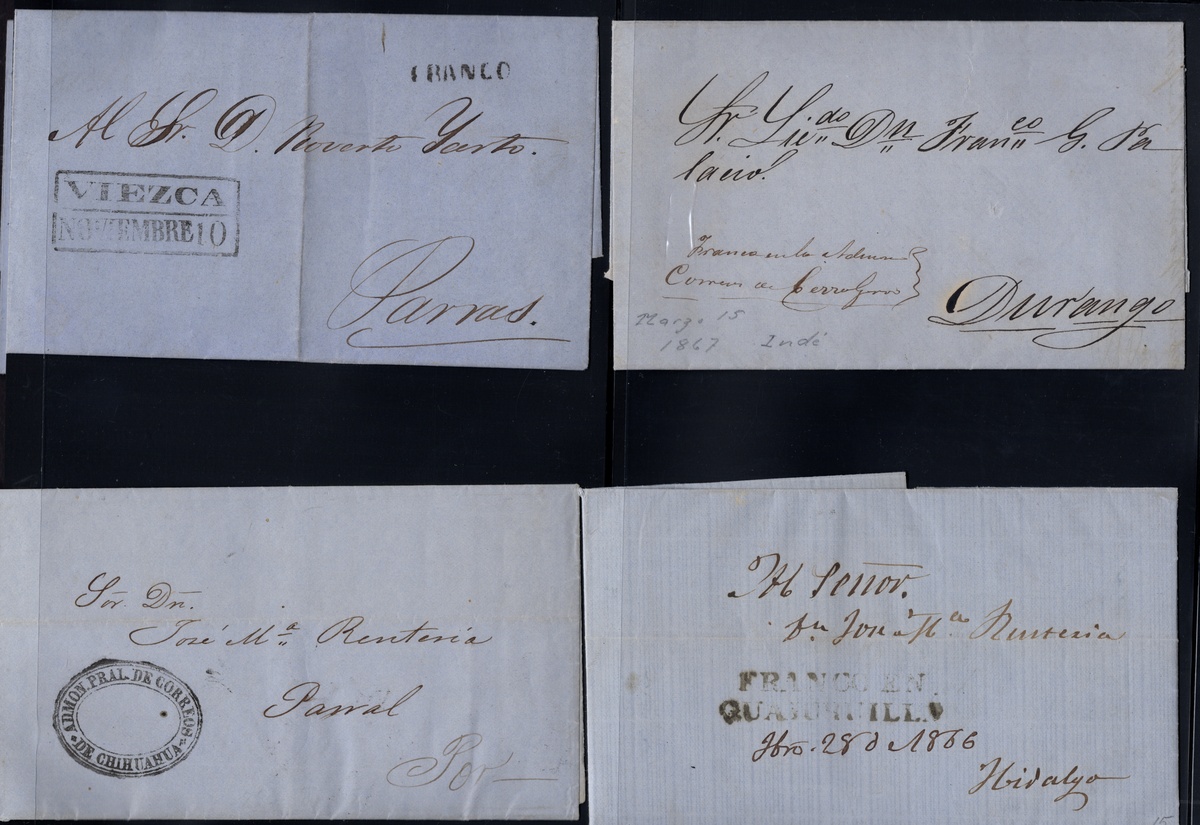 FRANCO
Al Sr. D. Roverto Yarto.
VIEZCA
NOVIEMBRE 10
Parras.
Sr. Licdo Dn Franco G. Pa
lacio.
Franca en la Admon
Correos de Cerro Gordo
Durango
Marzo 15
1867 Indé
Sor. Dn.
José Ma Renteria
Parral
ADMON. PRAL. DE CORREOS
DE CHIHUAHUA
Al Señor.
Dn José Ma Renteria
FRANCO EN
GUAJUQUILLA
28 d 1866
Hidalgo
15